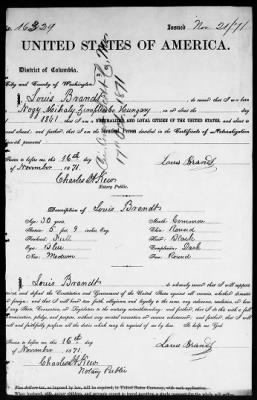 No. 16329 Issued Nov. 21/71
UNITED STATES OF AMERICA.
District of Columbia,
City and County of Washington.
I Louis Brandt do swear that I was born
Nagy Mihaly Hungary on or about the day
1841 that I am a NATURALIZED AND LOYAL CITIZEN OF THE UNITED STATES, and about to
travel abroad; and further, that I am the Person described in the Certificate of Naturalization
presented.
Sworn to before me, this 16th day Louis Brandt
of November 1871.
Charles H. Kew
Notary Public.
Description of Louis Brandt
Age: 30 years Mouth: Common
Stature: 5 feet 9 inches, Eng. Chin: Round
Forehead: Full Hair: Black
Eyes: Blue Complexion: Dark
Nose: Medium Face: Round
I, Louis Brandt do solemnly swear that I will support
and defend the Constitution and Government of the United States against all enemies, whether domestic
or foreign; and that I will bear true faith, allegiance and loyalty to the same, any ordinance, resolution, or law
of any State Convention or Legislature to the contrary notwithstanding; and further, that I do this
with a full determination, pledge and purpose, without any mental reservation or evasion whatsoever; and that I will
well and faithfully perform all the duties which may be required of me by law. So help me God.
Sworn to before me, this 16th day Louis Brandt
of November 1871.
Charles H. Kew
Notary Public